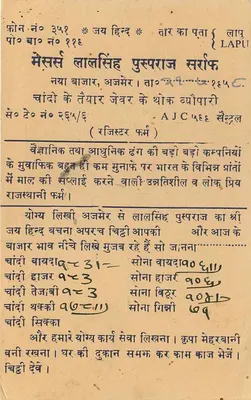 फोन नं० ३५१ * जय हिन्द * तार का पता { लालु
पो० बा० नं० ११६ LAPU
मेसर्स लालसिंह पुस्पराज सर्राफ
नया बाजार, अजमेर। ता० १९५
से० टे० नं० २६५/६ AJC ५६५ सैन्ट्रल
चांदी के तैयार जेवर के थोक व्यौपारी
(रजिस्टर फर्म)
वैज्ञानिक तथा आधुनिक ढंग की बड़ी बड़ी कम्पनियों
के मुवाफिक बहुत ही कम मुनाफे पर भारत के विभिन्न प्रांतों
में माल की सप्लाई करने वाली उन्नतिशील व लोक प्रिय
राजस्थानी फर्म।
योग्य लिखी अजमेर से लालसिंह पुस्पराज का श्री
जय हिन्द बचना अपरंच चिट्ठी आपकी और आज के
बाजार भाव नीचे लिखे मुजब रहे हैं सो जानना
चांदी वायदा सोना वायदा
चांदी हाजर सोना हाजर
चांदी तेजाबी सोना बिठुर
चांदी थक्की सोना गिन्नी
चांदी सिक्का
और हमारे योग्य कार्य सेवा लिखना। कृपा मेहरबानी
बनी रखना। घर की दुकान समझ कर काम काज भेजें।
चिट्ठी देवें।